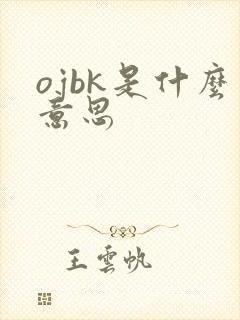 ojbk是什麽
意思
王雲帆